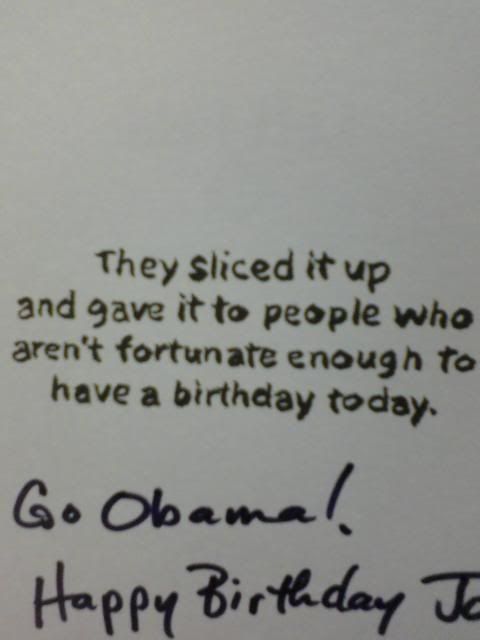 They sliced it up
and gave it to people who
aren't fortunate enough to
have a birthday today.
Go Obama!
Happy Birthday